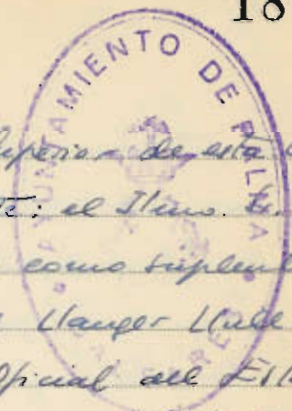 18
AYUNTAMIENTO DE
Superior de esta
el Ilmo. Sr.
como suplente
Llauger Llull
Oficial del